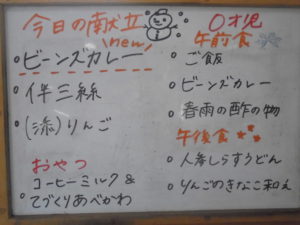 今日の献立
new
・ビーンズカレー
・伴三絲
・(添)りんご
おやつ
・コーヒーミルク&
てづくりあべかわ
0才児
午前食
・ご飯
・ビーンズカレー
・春雨の酢の物
午後食
・人参しらすうどん
・りんごのきなこ和え